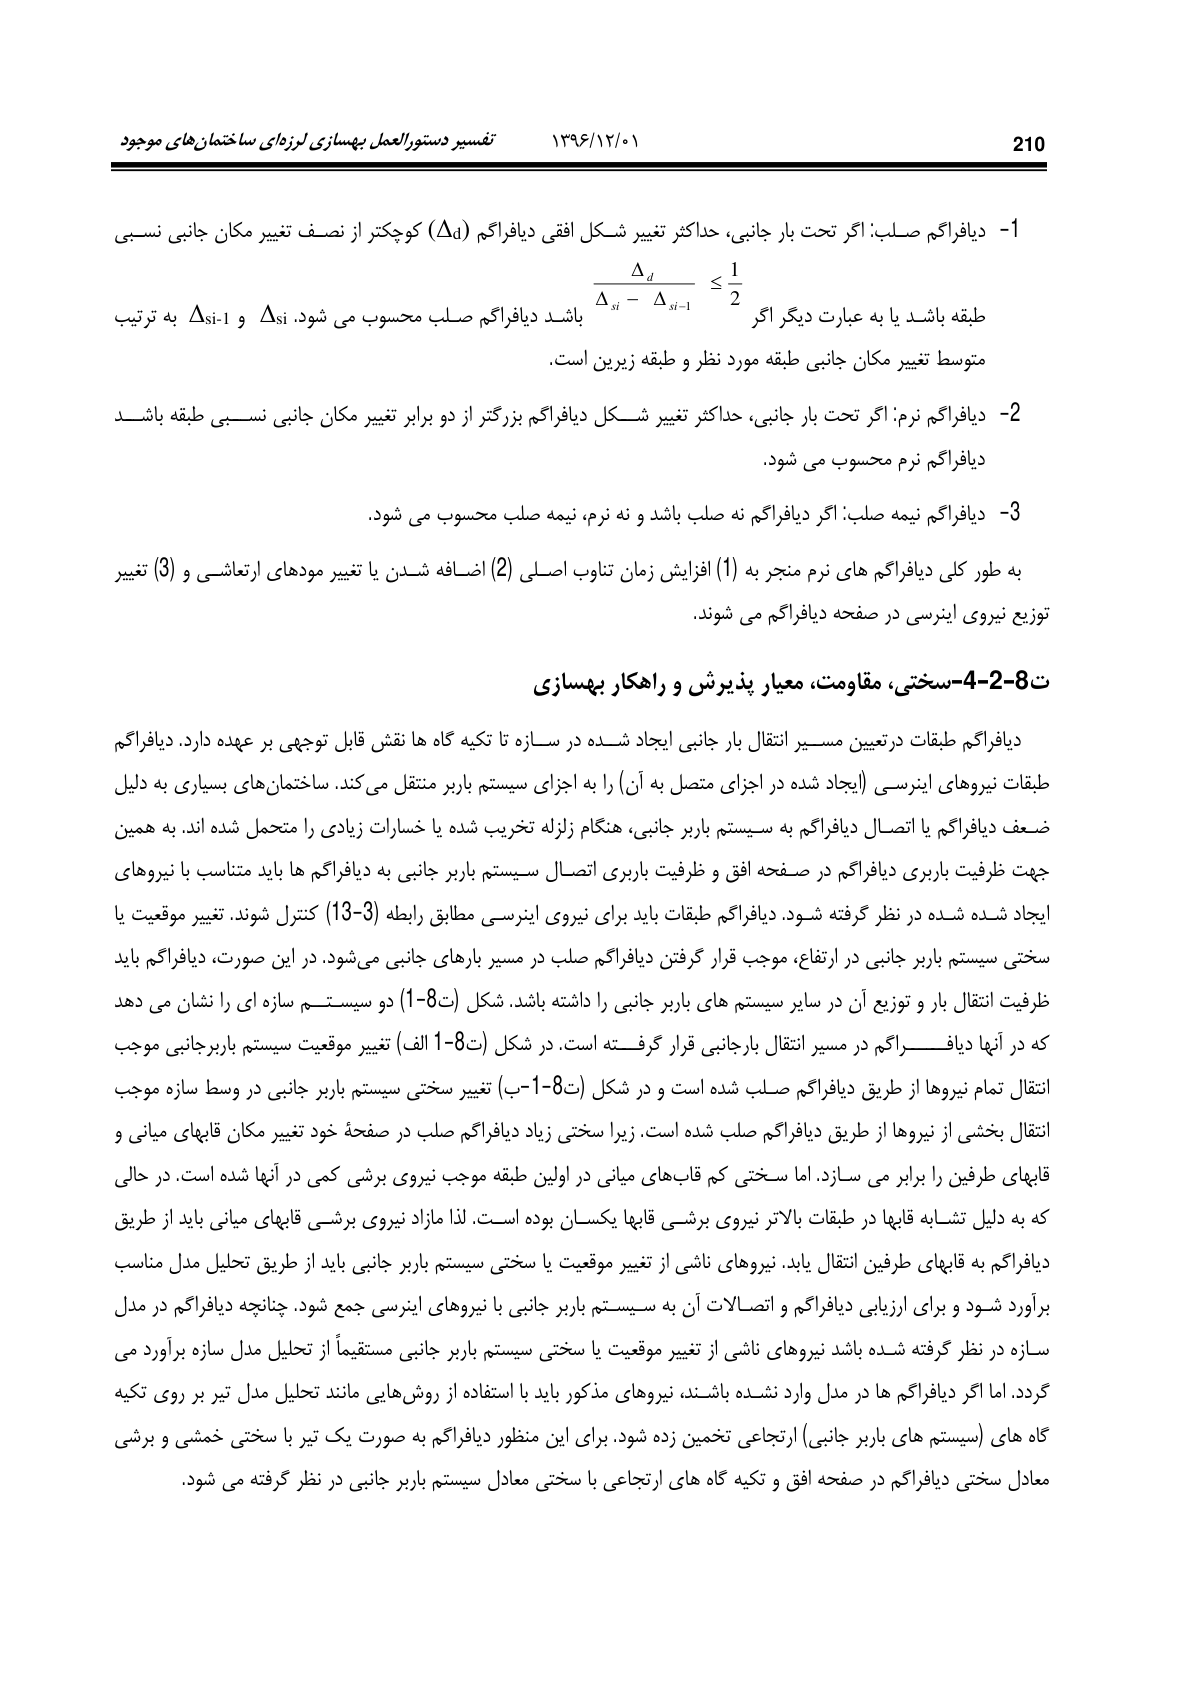 210 ۱۳۹۶/۱۲/۰۱ تفسیر دستورالعمل بهسازی لرزه‌ای ساختمان‌های موجود
1- دیافراگم صلب: اگر تحت بار جانبی، حداکثر تغییر شکل افقی دیافراگم (Δd) کوچکتر از نصف تغییر مکان جانبی نسبی
طبقه باشد یا به عبارت دیگر اگر Δd / (Δsi − Δsi−1) ≤ 1/2 باشد دیافراگم صلب محسوب می شود. Δsi و Δsi-1 به ترتیب
متوسط تغییر مکان جانبی طبقه مورد نظر و طبقه زیرین است.
2- دیافراگم نرم: اگر تحت بار جانبی، حداکثر تغییر شکل دیافراگم بزرگتر از دو برابر تغییر مکان جانبی نسبی طبقه باشد
دیافراگم نرم محسوب می شود.
3- دیافراگم نیمه صلب: اگر دیافراگم نه صلب باشد و نه نرم، نیمه صلب محسوب می شود.
به طور کلی دیافراگم های نرم منجر به (1) افزایش زمان تناوب اصلی (2) اضافه شدن یا تغییر مودهای ارتعاشی و (3) تغییر
توزیع نیروی اینرسی در صفحه دیافراگم می شوند.
ت8-2-4-سختی، مقاومت، معیار پذیرش و راهکار بهسازی
دیافراگم طبقات درتعیین مسیر انتقال بار جانبی ایجاد شده در سازه تا تکیه گاه ها نقش قابل توجهی بر عهده دارد. دیافراگم
طبقات نیروهای اینرسی (ایجاد شده در اجزای متصل به آن) را به اجزای سیستم باربر منتقل می‌کند. ساختمان‌های بسیاری به دلیل
ضعف دیافراگم یا اتصال دیافراگم به سیستم باربر جانبی، هنگام زلزله تخریب شده یا خسارات زیادی را متحمل شده اند. به همین
جهت ظرفیت باربری دیافراگم در صفحه افق و ظرفیت باربری اتصال سیستم باربر جانبی به دیافراگم ها باید متناسب با نیروهای
ایجاد شده شده در نظر گرفته شود. دیافراگم طبقات باید برای نیروی اینرسی مطابق رابطه (3-13) کنترل شوند. تغییر موقعیت یا
سختی سیستم باربر جانبی در ارتفاع، موجب قرار گرفتن دیافراگم صلب در مسیر بارهای جانبی می‌شود. در این صورت، دیافراگم باید
ظرفیت انتقال بار و توزیع آن در سایر سیستم های باربر جانبی را داشته باشد. شکل (ت8-1) دو سیستم سازه ای را نشان می دهد
که در آنها دیافراگم در مسیر انتقال بارجانبی قرار گرفته است. در شکل (ت8-1 الف) تغییر موقعیت سیستم باربرجانبی موجب
انتقال تمام نیروها از طریق دیافراگم صلب شده است و در شکل (ت8-1-ب) تغییر سختی سیستم باربر جانبی در وسط سازه موجب
انتقال بخشی از نیروها از طریق دیافراگم صلب شده است. زیرا سختی زیاد دیافراگم صلب در صفحهٔ خود تغییر مکان قابهای میانی و
قابهای طرفین را برابر می سازد. اما سختی کم قاب‌های میانی در اولین طبقه موجب نیروی برشی کمی در آنها شده است. در حالی
که به دلیل تشابه قابها در طبقات بالاتر نیروی برشی قابها یکسان بوده است. لذا مازاد نیروی برشی قابهای میانی باید از طریق
دیافراگم به قابهای طرفین انتقال یابد. نیروهای ناشی از تغییر موقعیت یا سختی سیستم باربر جانبی باید از طریق تحلیل مدل مناسب
برآورد شود و برای ارزیابی دیافراگم و اتصالات آن به سیستم باربر جانبی با نیروهای اینرسی جمع شود. چنانچه دیافراگم در مدل
سازه در نظر گرفته شده باشد نیروهای ناشی از تغییر موقعیت یا سختی سیستم باربر جانبی مستقیماً از تحلیل مدل سازه برآورد می
گردد. اما اگر دیافراگم ها در مدل وارد نشده باشند، نیروهای مذکور باید با استفاده از روش‌هایی مانند تحلیل مدل تیر بر روی تکیه
گاه های (سیستم های باربر جانبی) ارتجاعی تخمین زده شود. برای این منظور دیافراگم به صورت یک تیر با سختی خمشی و برشی
معادل سختی دیافراگم در صفحه افق و تکیه گاه های ارتجاعی با سختی معادل سیستم باربر جانبی در نظر گرفته می شود.